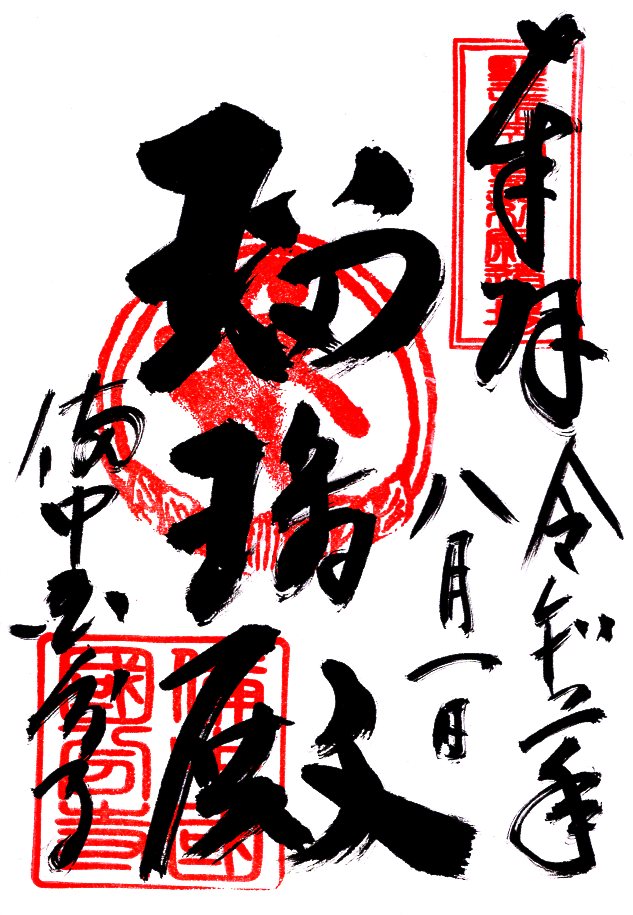 奉拝
令和二年
八月一日
瑠璃殿
備中国分寺
備中國國分寺